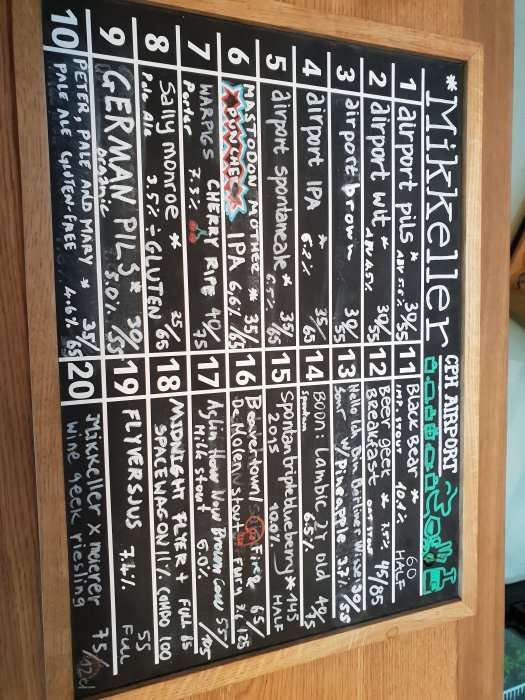 *Mikkeller CPH AIRPORT
1 airport pils * 30/55
ABV 5.0%
2 airport wit * 30/55
ABV 4.5%
3 airport brown 30/55
4 airport IPA * 35/65
6.2%
5 airport spontanale * 35/65
5.5%
6 MASTODON MOTHER * 35/65
PUNCHER IPA 6.6%
7 WARPIGS CHERRY RIPE 40/75
Porter 7.3%
8 Sally monroe * 25/65
Pale Ale 3.5% ÷GLUTEN
9 GERMAN PILS * 30/55
organic 5.0%
10 PETER, PALE AND MARY * 35/65
PALE ALE GLUTEN-FREE 4.6%
11 BLACK BEAR * 60
IMP. STOUT 10.1% HALF
12 Beer geek * 7.5% 45/85
Breakfast OAT STOUT
13 Hello Ich Bin Berliner Weisse 30/55
Sour w/Pineapple 3.7%
14 BOON: Lambic, 2yr old 40/75
6.5%
15 Spontantripleblueberry * 145
2015 10.0% HALF
16 Fire 65/125
De Molen Stout Fury
17 How Now Brown Cow 55/105
Milk stout 6.0%
18 MIDNIGHT FLYER + FULL 65
SPACEWAGON 11% COMBO 100
19 FLYVERSJUS 7.2% 55
FULL
20 Mikkeller x moerer 75/
wine geek riesling